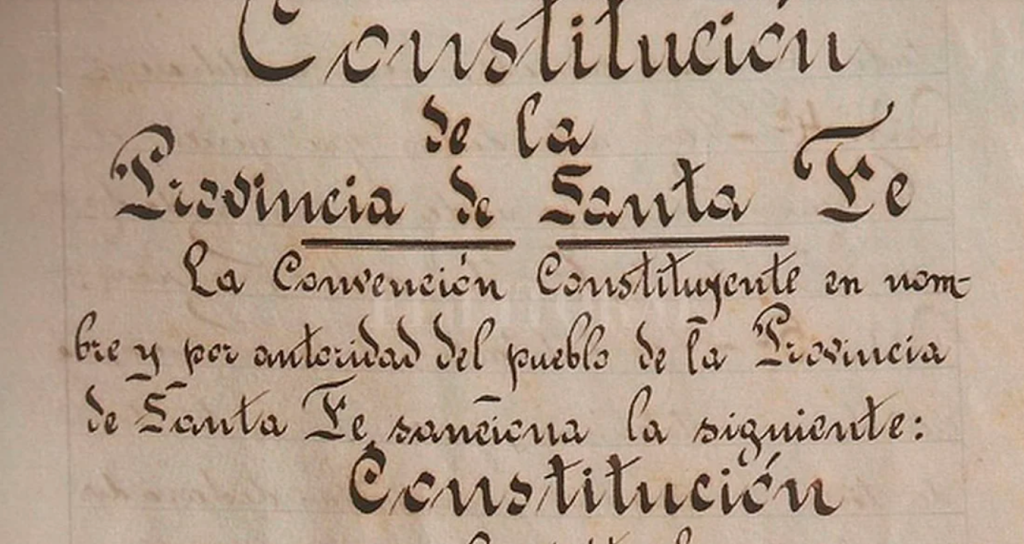 Constitución
de la
Provincia de Santa Fe
La Convención Constituyente en nom-
bre y por autoridad del pueblo de la Provincia
de Santa Fe, sanciona la siguiente:
Constitución